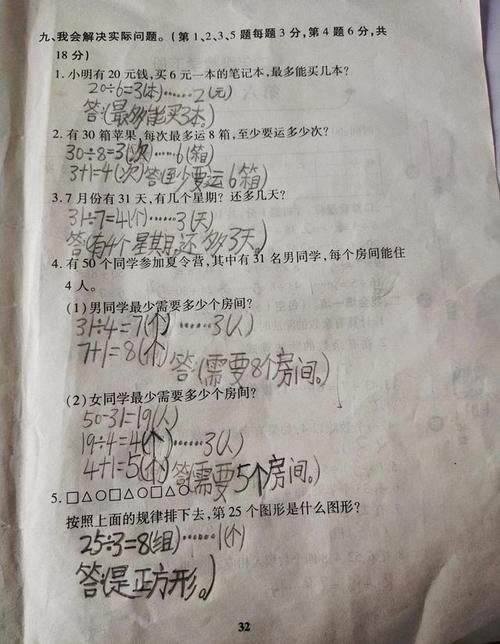 九、我会解决实际问题。(第1、2、3、5题每题3分,第4题6分,共
18分)
1. 小明有20元钱,买6元一本的笔记本,最多能买几本?
20÷6=3(本)……2(元)
答:(最多能买3本。)
2. 有30箱苹果,每次最多运8箱,至少要运多少次?
30÷8=3(次)……6(箱)
3+1=4(次)答:(至少要运6箱)
3. 7月份有31天,有几个星期?还多几天?
31÷7=4(个)……3(天)
答:(有4个星期,还多3天。)
4. 有50个同学参加夏令营,其中有31名男同学,每个房间能住
4人。
(1)男同学最少需要多少个房间?
31÷4=7(个)……3(人)
7+1=8(个)
答:(需要8个房间。)
(2)女同学最少需要多少个房间?
50-31=19(人)
19÷4=4(个)……3(人)
4+1=5(个)答:(需要5个房间。)
5. □△○□△○□△○
按照上面的规律排下去,第25个图形是什么图形?
25÷3=8(组)……1(个)
答:(是正方形。)
32